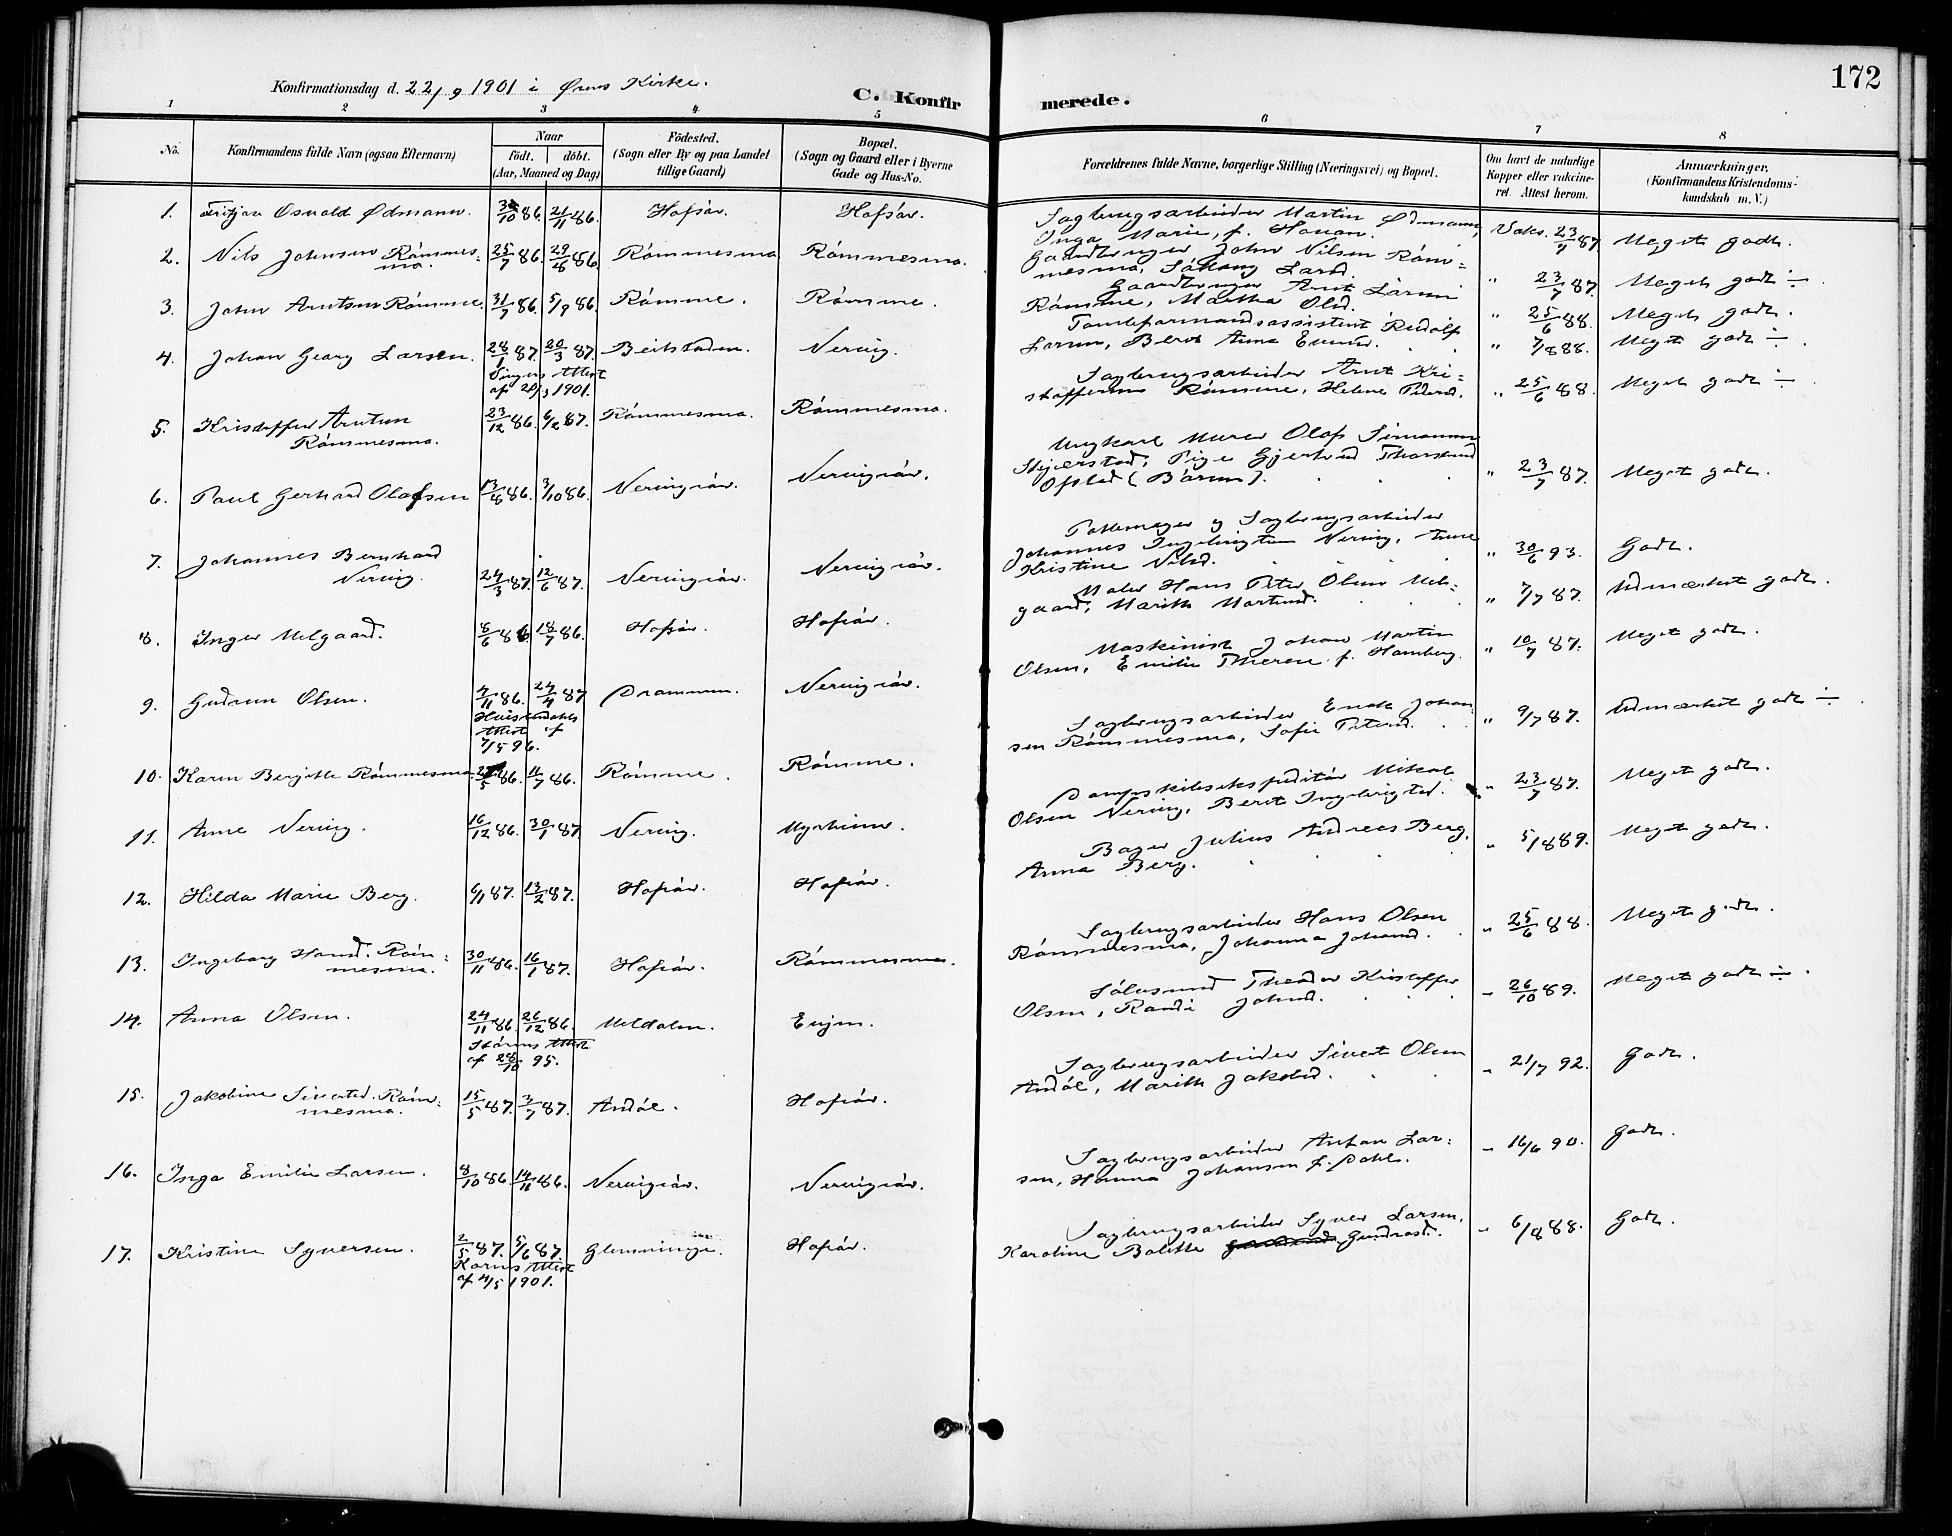 172
Konfirmationsdag d. 22/9 1901 i Kirke.
C. Konfirmerede.
1 2 3 4 5 6 7 8
No.
Konfirmandens fulde Navn (ogsaa Efternavn)
Naar
födt. döbt.
(Aar, Maaned og Dag)
Födested.
(Sogn eller By og paa Landet
tillige Gaard)
Bopæl.
(Sogn og Gaard eller i Byerne
Gade og Hus-No.
Forældrenes fulde Navne, borgerlige Stilling (Næringsvei) og Bopæl.
Om havt de naturlige
Kopper eller vakcine-
ret. Attest herom.
Anmærkninger.
(Konfirmandens Kristendoms-
kundskab m. V.)
1. Osvald Ødmann. /10 86. 21/11 86. Hofsör. Hofsör.
Sagbrugsarbeider Martin Ødmann,
Inga Marie, f. Vaks. 23/7 87 Meget godt.
2. Nils Johnsen Römmes-
mo. 25/7 86. 29/8 86. Römmesmo Römmesmo.
Gaardbruger John Nilsen Röm-
mesmo, Larsd. " 23/7 87. Meget godt ÷
3. John Arntsen Römme. 31/7 86. 5/9 86. Römme. Römme.
Gaardbruger Arnt Larsen
Römme, Martha Olsd. " 25/6 88. Meget godt.
4. Johan Georg Larsen. 28/1 87. 20/3 87. Beitstaden. Nervig.
Attest
1901.
Tomteformandsassistent Rudolf
Larsen, Berit Anna " 7/8 88. Meget godt ÷
5. Kristoffer Arntsen
Römmesmo. 23/12 86. 6/2 87. Römmesmo. Römmesmo.
Sagbrugsarbeider Arnt Kri-
stoffersen Römmesmo, Helene Pedersd. " 25/6 88. Meget godt ÷
6. Paul Gerhard Olafsen 13/8 86. 3/10 86. Nervigsör. Nervigsör.
Ungkarl Murer Olaf Simonsen
Skjerstad, Pige Gjertrud
Ofstad (Börsen). " 23/7 87. Meget godt.
7. Johannes Bernhard
Nervig. 24/3 87. 12/6 87. Nervigsör. Nervigsör.
Pottemager og Sagbrugsarbeider
Johannes Ingebrigtsen Nervig, Anne
Kristine Nilsd. " 30/6 93. Godt.
8. Inger Melgaard. 8/6 86 18/7 86. Hofsör. Hofsör.
Maler Hans Peter Olsen Mel-
gaard, Marith " 7/7 87. Udmærket godt.
9. Gudrun Olsen. 4/11 86. 24/4 87 Drammen. Nervigsör.
Attest af
7/5 96.
Maskinist Johan Martin
Olsen, Emilie Therese f. Hamberg. " 10/7 87. Meget godt.
10. Karen Bergitte Römmesmo /5 86. 11/7 86. Römme. Römme.
Sagbrugsarbeider Johan-
sen Römmesmo, Sofie Petersd. " 9/7 87. Udmærket godt ÷
11. Anne Nervig. 16/12 86. 30/1 87 Nervig. Myrheim.
Dampskibsekspeditör Mikal
Olsen Nervig, Berit Ingebrigtsd. " 23/7 87. Meget godt.
12. Hilda Marie Berg. 6/1 87. 13/2 87. Hofsör. Hofsör.
Bager Julius Andreas Berg,
Anna Berg. " 5/8 89. Meget godt.
13. Ingeborg Hansd. Röm-
mesmo. 30/11 86. 16/1 87. Hofsör. Römmesmo.
Sagbrugsarbeider Hans Olsen
Römmesmo, Johanna Johansd. " 25/6 88. Meget godt.
14. Anna Olsen. 24/11 86. 26/12 86. Meldalen. Evjen.
Störens Attest
af 28/10 95.
Theodor Kristoffer
Olsen, Randi Johnsd. " 26/10 89. Meget godt ÷
15. Jakobine Sivertsd. Röm-
mesmo. 15/5 87. 3/7 87. Hofsör.
Sagbrugsarbeider Sivert Olsen
Marith Jakobsd. " 21/7 92. Godt.
16. Inga Emilie Larsen. 8/10 86. 14/11 86. Nervigsör. Nervigsör.
Sagbrugsarbeider Anton Lar-
sen, Hanna Johansen f. Dahl. " 16/6 90. Godt.
17. Kristine Syversen. 2/5 87. 5/6 87. Hofsör.
Attest
af 4/5 1901.
Sagbrugsarbeider Syver Larsen,
Karoline Bolette " 6/8 88. Godt.